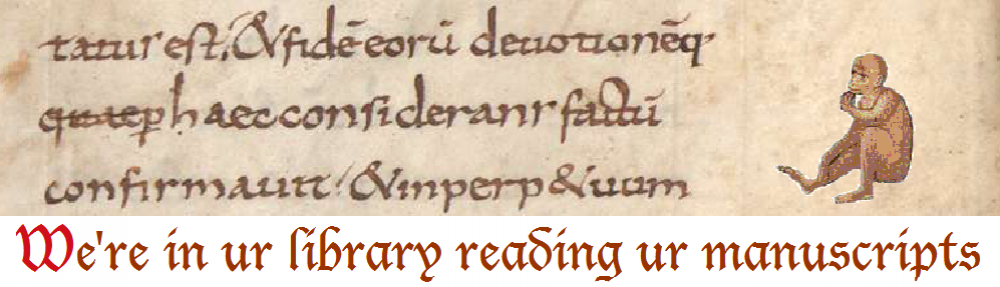 tatur est, & fidē eorū deuotionēq;
quaep haec considerans factū
confirmauit. & inperp&uum
We're in ur library reading ur manuscripts